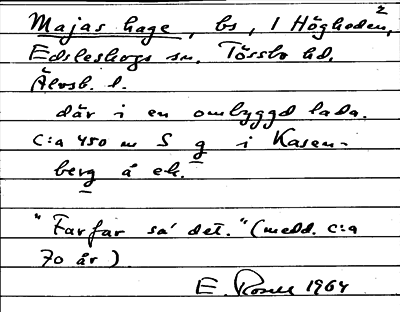 Majas hage, bs, 1 Högheden²,
Edsleskogs sn. Tössbo hd.
Älvsb. l.
där i en ombyggd lada.
C:a 450 m S g i Kasen-
berg å ek.
"Farfar sa' det." (medd. c:a
70 år)
E. Rosell 1964